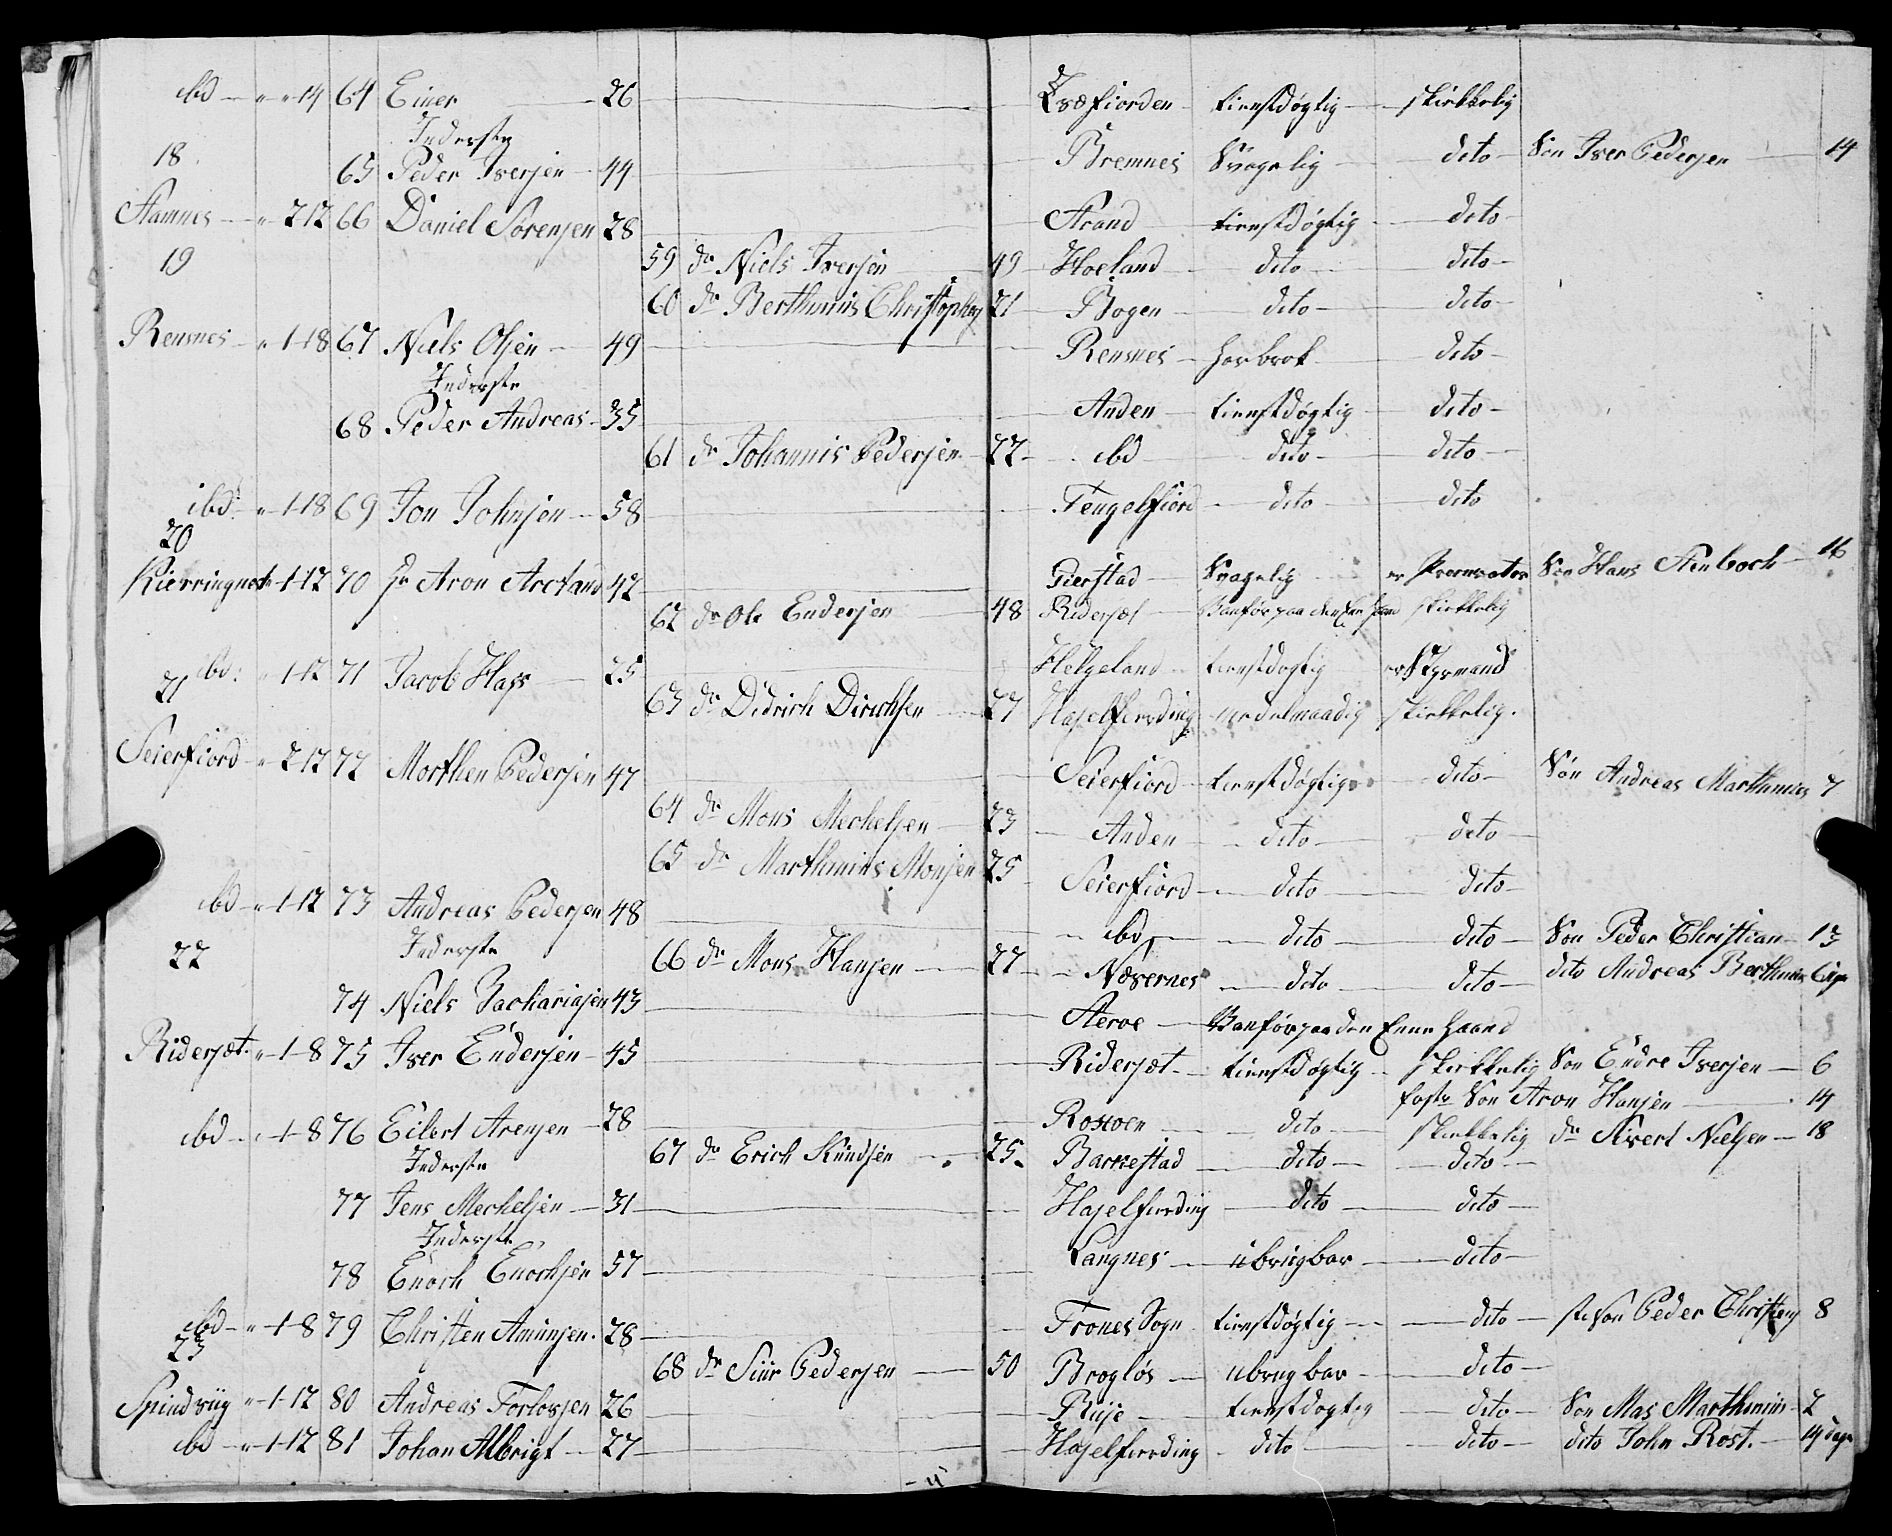 ibd — " " 14 64 Einer — 26 — Kræfiorden — tienstdøgtig — skikkelig
Inderste
18. 65 Peder Iversen — 44 — Bremnes — Svagelig — dito — Søn Iver Pedersen — 14
Stamnes — " 2 12 66 Daniel Sørensen 28 — Strand — tienstdøgtig — dito —
19 59 dr Niels Iversen — 49 — Hoeland — dito — dito —
60 dr Berthinius Christophers 21 — Bogen — dito — dito —
Rensnes — " 1 18 67 Niels Olsen — 49 — Rensnes — har brok — dito —
Inderste
68 Peder Andreas — 35 — Anden — tienstdøgtig — dito —
61 dr Johannis Pedersen — 22 — ibd — dito — dito —
ibd: " 1 18 69 Jon Johnsen — 58 — Tengelfiord — dito — dito
20
Kierringnes " 1 12 70 Hr Aron Arctand 42 — Gierstad — Svagelig — er Procurator Søn Hans Steenboch — 16
62 dr Ole Endersen — 48 Ridersæt — Vanför paa den Ene Haand skikkelig
ibd: " 1 12 71 Jacob Hass — 25 — Helgeland — tienstdøgtig er Styrmand
21 63 dr Didrich Dirichsen — 27 Hasselfierding — medelmaadig — skikkelig.
Seierfiord — " 2 12 72 Morthen Pedersen 47 — Seierfiord — tienstdøgtig — dito — Søn Andreas Marthinius 7
64 dr Mons Mechelsen — 23 — Anden — dito — dito —
65 dr Marthinus Monsen 25 — Seierfiord — dito — dito —
ibd — " 1 12 73 Andreas Pedersen 48 — ibd — dito — dito — Søn Peder Christian — 13
22 Inderste 66 dr Mons Hansen — 22 — Næsernes — dito — dito — dito Andreas Berthinius 6 uger
74 Niels Zachariasen 43 — Steroe — Vanför paa den Ene Haand
Ridersæt " 1 8 75 Iver Endersen — 45 — Ridersæt — tienstdøgtig — skikkelig Søn Endre Iversen — 6
foster Søn Aron Hansen — 14
ibd — " 1 8 76 Eilert Arensen — 28 — Roswen — dito — skikkelig dr Sivert Nielsen — 18
Inderste 67 dr Erich Knudsen — 25 — Barkestad — dito — dito —
77 Jens Mechelsen — 31 — Hasselfierding — dito — dito —
Inderste
78 Enoch Enochsen 57 — Langnes — ubrugbar — dito —
ibd — " 1 8 79 Christen Amunsen. 28 — Trones Sogn tienstdøgtig — dito — stisøn Peder Christens 8
23 68 dr Siur Pedersen — 50 Brogløs — ubrugbar — dito —
Spindviig " 1 12 80 Andreas Torlovsen 26 — Ruje — tienstdøgtig — dito — Søn Mas Marthinius — 2
ibd — " 1 12 81 Johan Albrigt — 27 — Hasselfierding — dito — dito — dito John Rost. — 14 dage